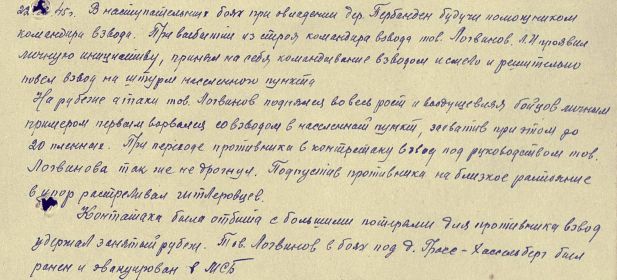 22 45г. В наступательных боях при овладении дер. Гербанден будучи помощником
командира взвода. При выбытии из строя командира взвода тов. Логвинов. Л.И проявил
личную инициативу, принял на себя командование взводом и смело и решительно
повел взвод на штурм населенного пункта
На рубеже атаки тов. Логвинов поднялся во весь рост и воодушевляя бойцов личным
примером первым ворвался со взводом в населенный пункт, захватив при этом до
20 пленных. При переходе противника в контратаку взвод под руководством тов.
Логвинова так же не дрогнул. Подпустив противника на близкое растояние
в упор растреливал гитлеровцев.
Контатака была отбита с большими потерями для противника взвод
удержал занятый рубеж. Тов. Логвинов в боях под д. Гросс-Хассельберг был
ранен и эвакуирован в МСБ